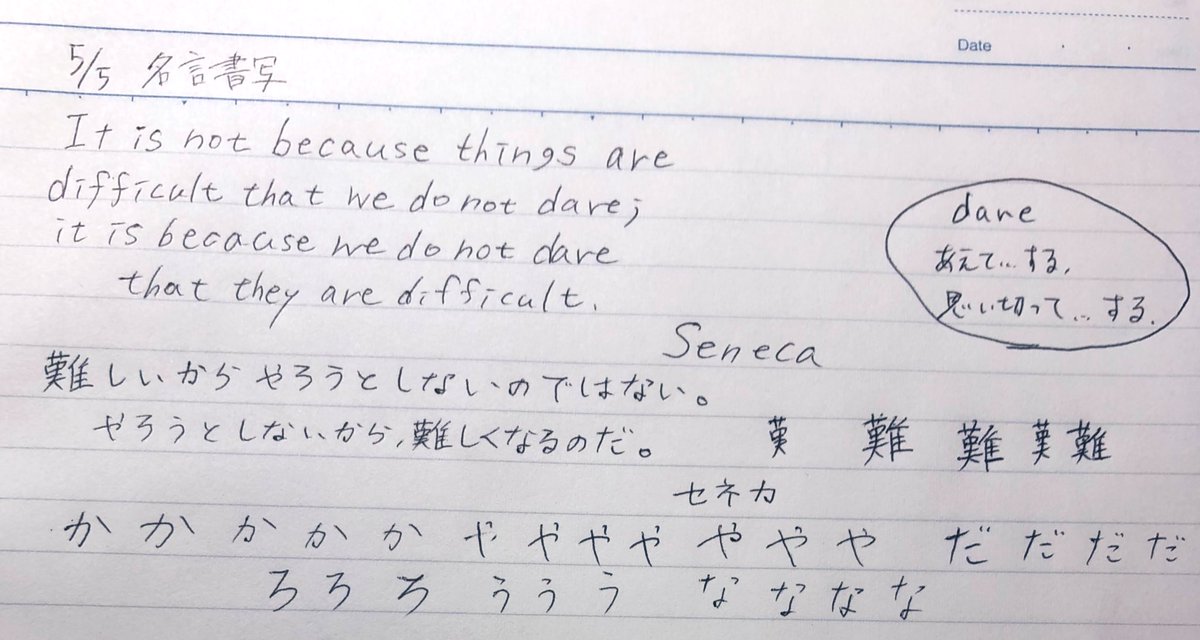 Date
5/5 名言書写
It is not because things are
difficult that we do not dare;
it is because we do not dare
that they are difficult.
Seneca
dare
あえて…する,
思い切って…する.
難しいからやろうとしないのではない。
やろうとしないから,難しくなるのだ。
難 難 難
セネカ
か か か か か や や や や や や や だ だ だ だ
ろ ろ ろ う う う な な な な